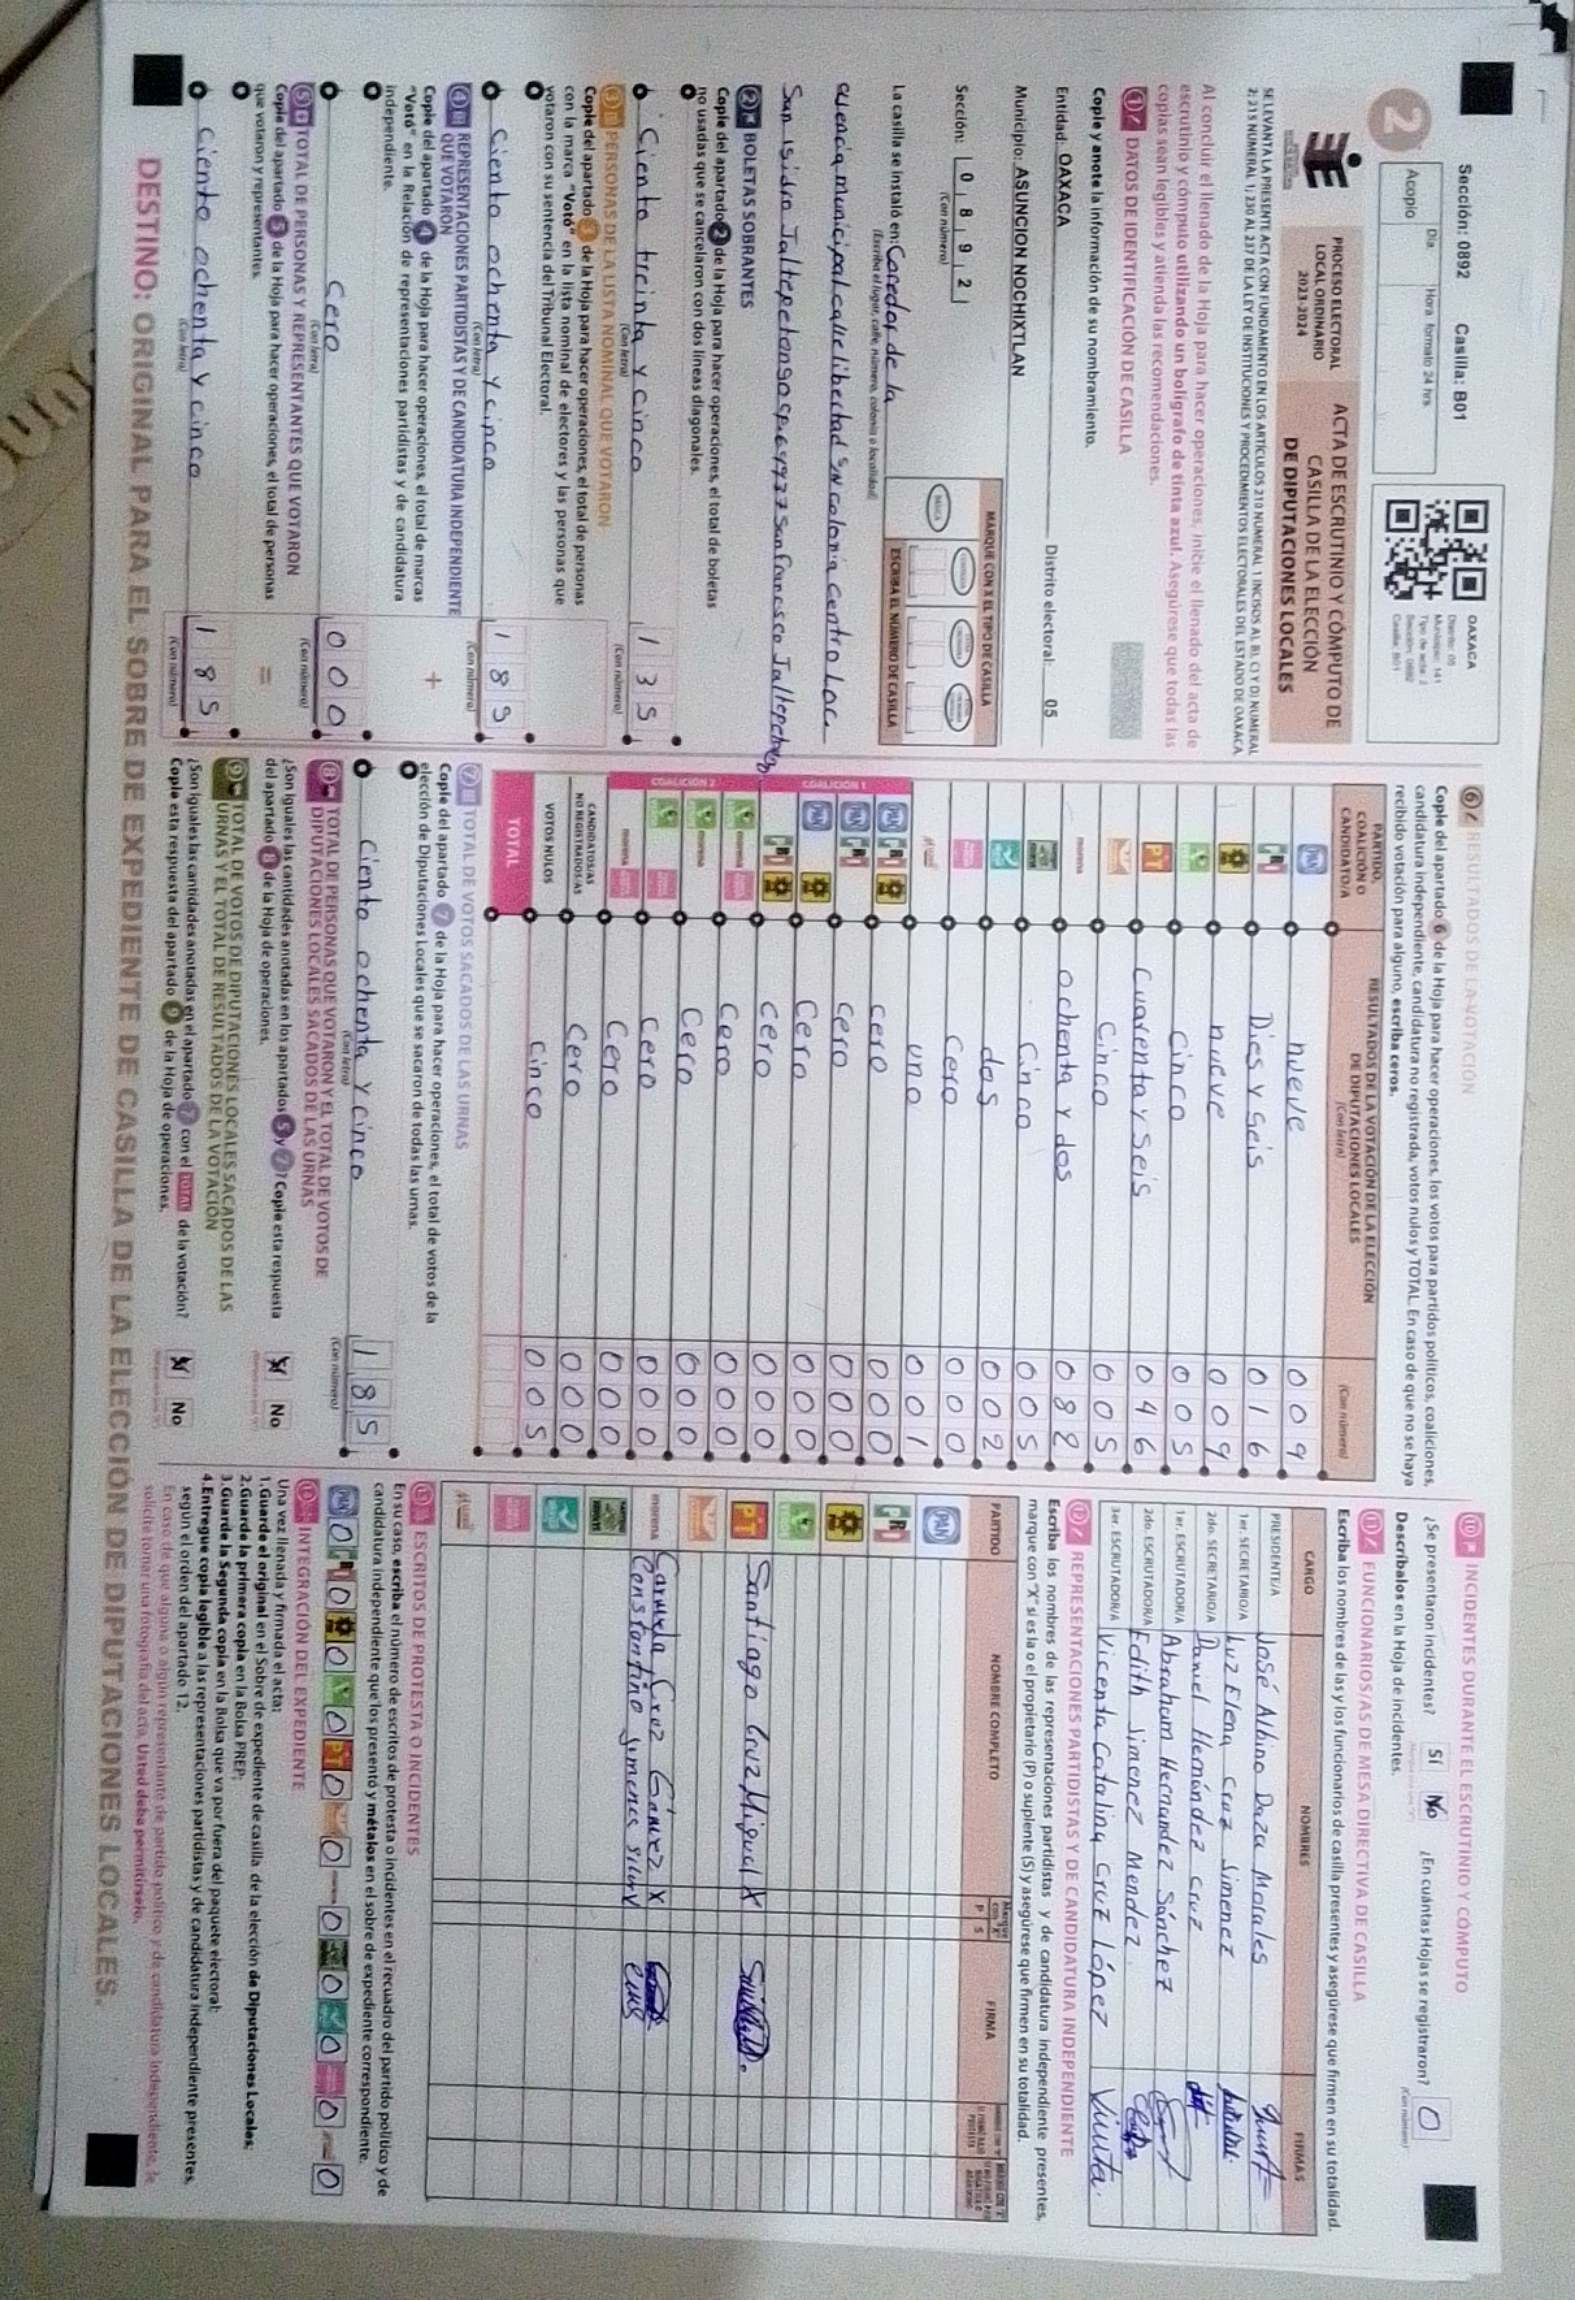 Sección: 0892 Casilla: B01
2
Día Hora formato 24 hrs
Acopio
OAXACA
Distrito: 05
Municipio: 141
Tipo de acta: 2
Sección: 0892
Casilla: B01
PROCESO ELECTORAL
LOCAL ORDINARIO
2023-2024
ACTA DE ESCRUTINIO Y CÓMPUTO DE
CASILLA DE LA ELECCIÓN
DE DIPUTACIONES LOCALES
SE LEVANTA LA PRESENTE ACTA CON FUNDAMENTO EN LOS ARTÍCULOS 210 NUMERAL 1 INCISOS A), B), C) Y D) NUMERAL
2; 215 NUMERAL 1; 230 AL 237 DE LA LEY DE INSTITUCIONES Y PROCEDIMIENTOS ELECTORALES DEL ESTADO DE OAXACA.
Al concluir el llenado de la Hoja para hacer operaciones, inicie el llenado del acta de
escrutinio y cómputo utilizando un bolígrafo de tinta azul. Asegúrese que todas las
copias sean legibles y atienda las recomendaciones.
1 DATOS DE IDENTIFICACIÓN DE CASILLA
Copie y anote la información de su nombramiento.
Entidad: OAXACA Distrito electoral: 05
Municipio: ASUNCION NOCHIXTLAN
Sección: 0 8 9 2
(Con número)
MARQUE CON X EL TIPO DE CASILLA
BÁSICA
ESCRIBA EL NÚMERO DE CASILLA
La casilla se instaló en: Coredor de la
(Escriba el lugar, calle, número, colonia o localidad)
agencia municipal calle libertad S/N colonia centro Loc.
San Isidro Jaltepetongo cp. 69937 San francisco Jaltepetongo
2 BOLETAS SOBRANTES
Copie del apartado 2 de la Hoja para hacer operaciones, el total de boletas
no usadas que se cancelaron con dos líneas diagonales.
Ciento treinta y cinco 1 3 5
(Con letra) (Con número)
3 PERSONAS DE LA LISTA NOMINAL QUE VOTARON
Copie del apartado 3 de la Hoja para hacer operaciones, el total de personas
con la marca "Votó" en la lista nominal de electores y las personas que
votaron con su sentencia del Tribunal Electoral.
Ciento ochenta y cinco 1 8 5
(Con letra) (Con número)
4 REPRESENTACIONES PARTIDISTAS Y DE CANDIDATURA INDEPENDIENTE
QUE VOTARON
Copie del apartado 4 de la Hoja para hacer operaciones, el total de marcas
"Votó" en la Relación de representaciones partidistas y de candidatura
independiente.
+
Cero 0 0 0
(Con letra) (Con número)
5 TOTAL DE PERSONAS Y REPRESENTANTES QUE VOTARON
Copie del apartado 5 de la Hoja para hacer operaciones, el total de personas
que votaron y representantes.
=
Ciento ochenta y cinco 1 8 5
(Con letra) (Con número)
6 RESULTADOS DE LA VOTACIÓN
Copie del apartado 6 de la Hoja para hacer operaciones, los votos para partidos políticos, coaliciones,
candidatura independiente, candidatura no registrada, votos nulos y TOTAL. En caso de que no se haya
recibido votación para alguno, escriba ceros.
PARTIDO, COALICIÓN O CANDIDATO/A
RESULTADOS DE LA VOTACIÓN DE LA ELECCIÓN
DE DIPUTACIONES LOCALES
(Con letra) (Con número)
PAN nueve 0 0 9
PRI Dies y seis 0 1 6
nueve 0 0 9
cinco 0 0 5
PT Cuarenta y seis 0 4 6
Cinco 0 0 5
morena ochenta y dos 0 8 2
Cinco 0 0 5
dos 0 0 2
Cero 0 0 0
uno 0 0 1
COALICIÓN 1
PAN PRI cero 0 0 0
PAN PRI cero 0 0 0
PAN Cero 0 0 0
PRI cero 0 0 0
COALICIÓN 2
morena Cero 0 0 0
morena Cero 0 0 0
Cero 0 0 0
morena Cero 0 0 0
CANDIDATOS/AS
NO REGISTRADOS/AS Cero 0 0 0
VOTOS NULOS Cinco 0 0 5
TOTAL
7 TOTAL DE VOTOS SACADOS DE LAS URNAS
Copie del apartado 7 de la Hoja para hacer operaciones, el total de votos de la
elección de Diputaciones Locales que se sacaron de todas las urnas.
Ciento ochenta y cinco 1 8 5
(Con letra) (Con número)
8 TOTAL DE PERSONAS QUE VOTARON Y EL TOTAL DE VOTOS DE
DIPUTACIONES LOCALES SACADOS DE LAS URNAS
¿Son iguales las cantidades anotadas en los apartados 5 y 7? Copie esta respuesta
del apartado 8 de la Hoja de operaciones.
Sí No
9 TOTAL DE VOTOS DE DIPUTACIONES LOCALES SACADOS DE LAS
URNAS Y EL TOTAL DE RESULTADOS DE LA VOTACIÓN
¿Son iguales las cantidades anotadas en el apartado 7 con el TOTAL de la votación?
Copie esta respuesta del apartado 9 de la Hoja de operaciones.
Sí No
10 INCIDENTES DURANTE EL ESCRUTINIO Y CÓMPUTO
¿Se presentaron incidentes? Sí No ¿En cuántas Hojas se registraron? 0
(Con número)
Descríbalos en la Hoja de incidentes.
11 FUNCIONARIOS/AS DE MESA DIRECTIVA DE CASILLA
Escriba los nombres de las y los funcionarios de casilla presentes y asegúrese que firmen en su totalidad.
CARGO NOMBRES FIRMAS
PRESIDENTE/A José Albino Daza Morales
1er. SECRETARIO/A Luz Elena Cruz Jimenez
2do. SECRETARIO/A Daniel Hernández Cruz
1er. ESCRUTADOR/A Abraham Hernandez Sánchez
2do. ESCRUTADOR/A Edith Jimenez Mendez
3er. ESCRUTADOR/A Vicenta Catalina Cruz López
12 REPRESENTACIONES PARTIDISTAS Y DE CANDIDATURA INDEPENDIENTE
Escriba los nombres de las representaciones partidistas y de candidatura independiente presentes,
marque con "X" si es la o el propietario (P) o suplente (S) y asegúrese que firmen en su totalidad.
PARTIDO NOMBRE COMPLETO Marque con "X" P S FIRMA
PAN
PRI
PT Santiago Cruz Miguel X
morena Carmela Cruz Gámez X
Constantino Jimenez
13 ESCRITOS DE PROTESTA O INCIDENTES
En su caso, escriba el número de escritos de protesta o incidentes en el recuadro del partido político y de
candidatura independiente que los presentó y métalos en el sobre de expediente correspondiente.
PAN 0 PRI 0 0 0 PT 0 0 0 0 0 0 0
14 INTEGRACIÓN DEL EXPEDIENTE
Una vez llenada y firmada el acta:
1.Guarde el original en el Sobre de expediente de casilla de la elección de Diputaciones Locales;
2.Guarde la primera copia en la Bolsa PREP;
3.Guarde la Segunda copia en la Bolsa que va por fuera del paquete electoral;
4.Entregue copia legible a las representaciones partidistas y de candidatura independiente presentes,
según el orden del apartado 12.
En caso de que alguna o algún representante de partido político y de candidatura independiente, le
solicite tomar una fotografía del acta, Usted deba permitírselo.
DESTINO: ORIGINAL PARA EL SOBRE DE EXPEDIENTE DE CASILLA DE LA ELECCIÓN DE DIPUTACIONES LOCALES.